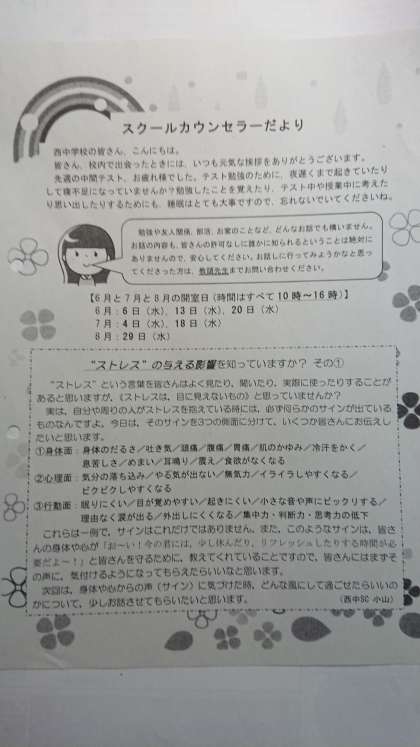 スクールカウンセラーだより
西中学校の皆さん、こんにちは。
皆さん、校内で出会ったときには、いつも元気な挨拶をありがとうございます。
先週の中間テスト、お疲れ様でした。テスト勉強のために、夜遅くまで起きていたり
して寝不足になっていませんか？勉強したことを覚えたり、テスト中や授業中に考えた
り思い出したりするためにも、睡眠はとても大事ですので、忘れないでいてくださいね。
勉強や友人関係、部活、お家のことなど、どんなお話でも構いません。
お話の内容も、皆さんの許可なしに誰かに知られるということは絶対に
ありませんので、安心してください。お話しに行ってみようかなと思っ
てくださった方は、教頭先生までお問い合わせください。
【6月と7月と8月の開室日（時間はすべて10時～16時）】
6月：6日（水）、13日（水）、20日（水）
7月：4日（水）、18日（水）
8月：29日（水）
“ストレス”の与える影響を知っていますか？ その①
“ストレス”という言葉を皆さんはよく見たり、聞いたり、実際に使ったりすることが
あると思いますが、《ストレスは、目に見えないもの》と思っていませんか？
実は、自分や周りの人がストレスを抱えている時には、必ず何らかのサインが出ている
ものなんですよ。今日は、そのサインを3つの側面に分けて、いくつか皆さんにお伝えし
たいと思います。
①身体面：身体のだるさ／吐き気／頭痛／腹痛／胃痛／肌のかゆみ／冷汗をかく／
息苦しさ／めまい／耳鳴り／震え／食欲がなくなる
②心理面：気分の落ち込み／やる気が出ない／無気力／イライラしやすくなる／
ビクビクしやすくなる
③行動面：眠りにくい／目が覚めやすい／起きにくい／小さな音や声にビックリする／
理由なく涙が出る／外出しにくくなる／集中力・判断力・思考力の低下
これらは一例で、サインはこれだけではありません。また、このようなサインは、皆さ
んの身体や心が「お～い！今の君には、少し休んだり、リフレッシュしたりする時間が必
要だよ～！」と皆さんを守るために、教えてくれていることですので、皆さんにはまずそ
の声に、気付けるようになってもらえたらいいなと思います。
次回は、身体や心からの声（サイン）に気づけた時、どんな風にして過ごせたらいいの
かについて、少しお話させてもらいたいと思います。
（西中SC 小山）